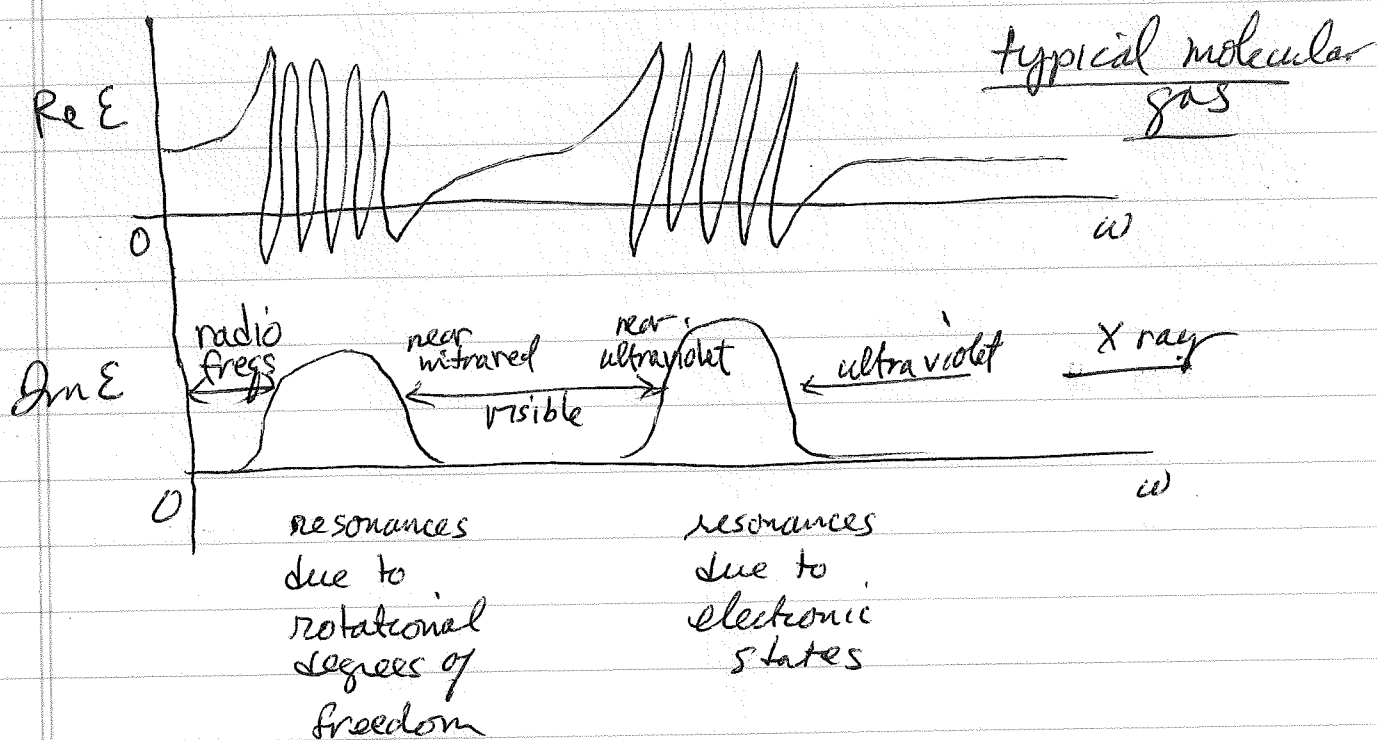 typical molecular
gas
Re ε
0
ω
radio
freqs
near
infrared
near
ultraviolet
visible
ultraviolet
X ray
Im ε
0
ω
resonances
due to
rotational
degrees of
freedom
resonances
due to
electronic
states